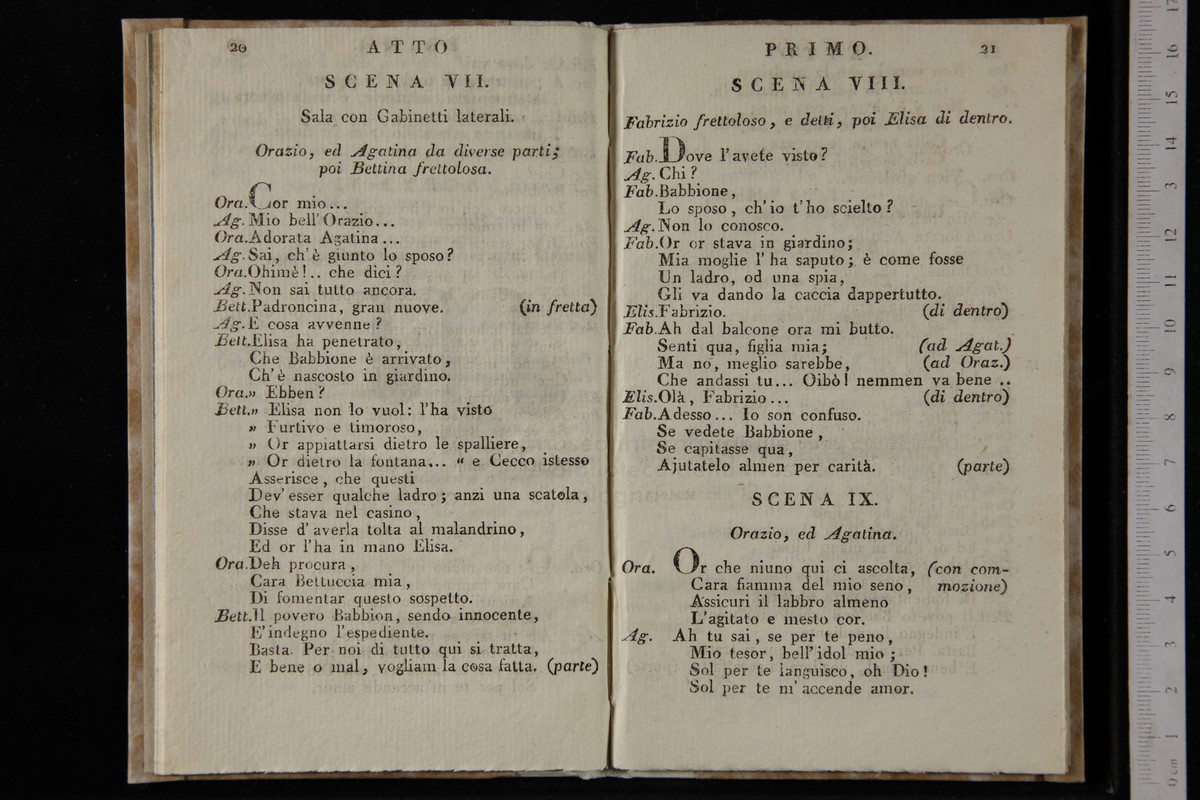 20 ATTO
SCENA VII.
Sala con Gabinetti laterali.
Orazio, ed Agatina da diverse parti;
poi Bettina frettolosa.
Ora. Cor mio...
Ag. Mio bell' Orazio...
Ora. Adorata Agatina...
Ag. Sai, ch'è giunto lo sposo?
Ora. Ohimè!.. che dici?
Ag. Non sai tutto ancora.
Bett. Padroncina, gran nuove. (in fretta)
Ag. E cosa avvenne?
Bett. Elisa ha penetrato,
Che Babbione è arrivato,
Ch'è nascosto in giardino.
Ora. » Ebben?
Bett. » Elisa non lo vuol: l'ha visto
» Furtivo e timoroso,
» Or appiattarsi dietro le spalliere,
» Or dietro la fontana... “ e Cecco istesso
Asserisce, che questi
Dev' esser qualche ladro; anzi una scatola,
Che stava nel casino,
Disse d'averla tolta al malandrino,
Ed or l'ha in mano Elisa.
Ora. Deh procura,
Cara Bettuccia mia,
Di fomentar questo sospetto.
Bett. Il povero Babbion, sendo innocente,
E' indegno l'espediente.
Basta. Per noi di tutto qui si tratta,
E bene o mal, vogliam la cosa fatta. (parte)
PRIMO. 21
SCENA VIII.
Fabrizio frettoloso, e detti, poi Elisa di dentro.
Fab. Dove l'avete visto?
Ag. Chi?
Fab. Babbione,
Lo sposo, ch'io t'ho scielto?
Ag. Non lo conosco.
Fab. Or or stava in giardino;
Mia moglie l'ha saputo; è come fosse
Un ladro, od una spia,
Gli va dando la caccia dappertutto.
Elis. Fabrizio. (di dentro)
Fab. Ah dal balcone ora mi butto.
Senti qua, figlia mia; (ad Agat.)
Ma no, meglio sarebbe, (ad Oraz.)
Che andassi tu... Oibò! nemmen va bene ..
Elis. Olà, Fabrizio... (di dentro)
Fab. Adesso... Io son confuso.
Se vedete Babbione,
Se capitasse qua,
Ajutatelo almen per carità. (parte)
SCENA IX.
Orazio, ed Agatina.
Ora. Or che niuno qui ci ascolta, (con com-
Cara fiamma del mio seno, mozione)
Assicuri il labbro almeno
L'agitato e mesto cor.
Ag. Ah tu sai, se per te peno,
Mio tesor, bell'idol mio;
Sol per te languisco, oh Dio!
Sol per te m'accende amor.
0 cm 1 2 3 4 5 6 7 8 9 10 11 12 13 14 15 16 17